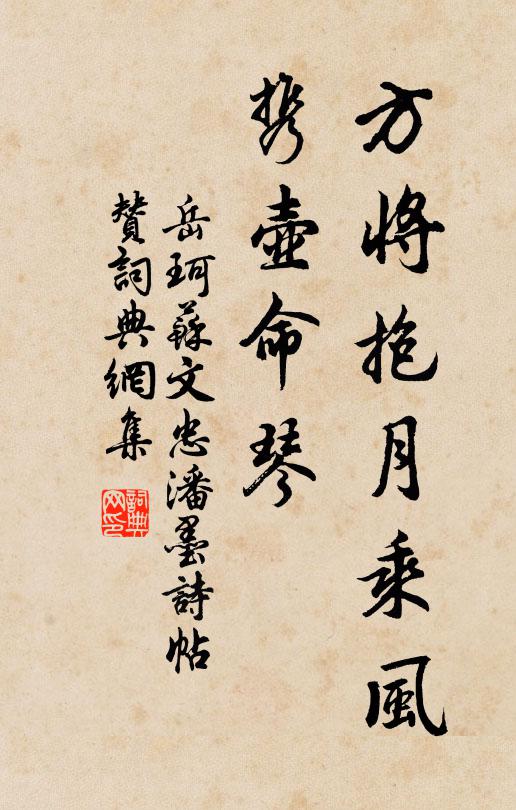 方將抱月乘風
携壺命琴
岳珂蘇文忠潘墨詩帖
贊詞典網集
詞典网印